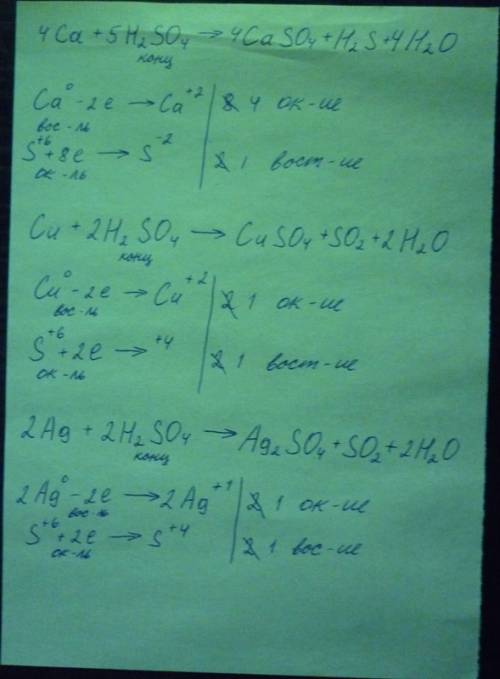 4Ca + 5H₂SO₄ → 4CaSO₄ + H₂S + 4H₂O
конц
Ca⁰ - 2e → Ca⁺² | 4 ок-ие
вос-ль
S⁺⁶ + 8e → S⁻² | 1 вост-ие
ок-ль
Cu + 2H₂SO₄ → CuSO₄ + SO₂ + 2H₂O
конц
Cu⁰ - 2e → Cu⁺² | 2 1 ок-ие
вос-ль
S⁺⁶ + 2e → ⁺⁴ | 2 1 вост-ие
ок-ль
2Ag + 2H₂SO₄ → Ag₂SO₄ + SO₂ + 2H₂O
конц
2Ag⁰ - 2e → 2Ag⁺¹ | 2 1 ок-ие
вос-ль
S⁺⁶ + 2e → S⁺⁴ | 2 1 вос-ие
ок-ль